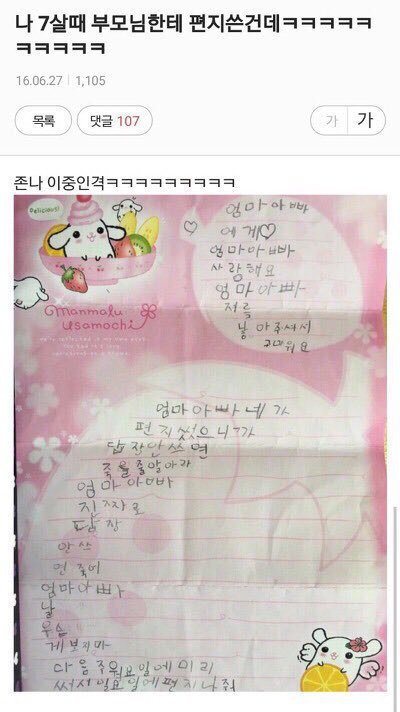 나 7살때 부모님한테 편지쓴건데ㅋㅋㅋㅋㅋ
ㅋㅋㅋㅋㅋ
16.06.27 | 1,105
목록
댓글 107
가
가
존나 이중인격ㅋㅋㅋㅋㅋㅋㅋㅋㅋ
Delicious!
Manmalu
Usamochi
엄마아빠
에게♡
♡
엄마아빠
사랑해요
엄마아빠
저를
낳아주셔서
고마워요
엄마아빠 내가
편지썼으니까
답장안쓰면
죽을줄알아라
엄마아빠
진짜로
답장
안쓰
면 죽어
엄마아빠
날
우습
게보지마
다음주월요일에미리
써서일요일에편지나줘